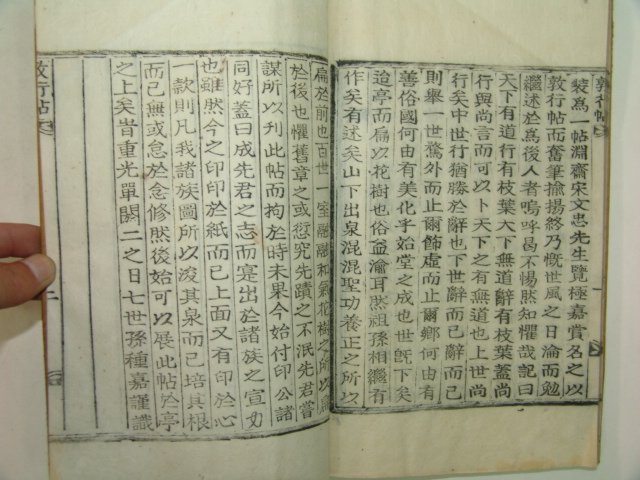 敦行帖
裝爲一帖淵齋宋文忠先生覽極嘉賞名之以
敦行帖而奮筆揄揚終乃慨世風之日淪而勉
繼述於爲後人者嗚呼曷不惕然知懼哉記曰
天下有道行有枝葉天下無道辭有枝葉蓋尚
行與尚言而可以卜天下之有無道也上世尚
行矣中世行猶勝於辭也下世辭而已辭而已
則舉一世騖外而止爾飾虛而止爾鄉何由有
善俗國何由有美化乎始堂之成也世旣下矣
迨亭而扁以花樹也俗益渝耳然祖孫相繼有
作矣有述矣山下出泉混混聖功養正之所以
扁於前也百世一室融融和氣花樹之所以扁
於後也懼舊章之或愆究先蹟之不泯先君嘗
謀所以刋此帖而拘於時未果今始付印公諸
同好蓋曰成先君之志而寔出於諸族之宣力
也雖然今之印印於紙而已上面又有印於心
一款則凡我諸族圖所以浚其泉而已培其根
而已無或怠於念修然後始可以展此帖於亭
之上矣旹重光單閼二之日七世孫種嘉謹識
敦行帖
二